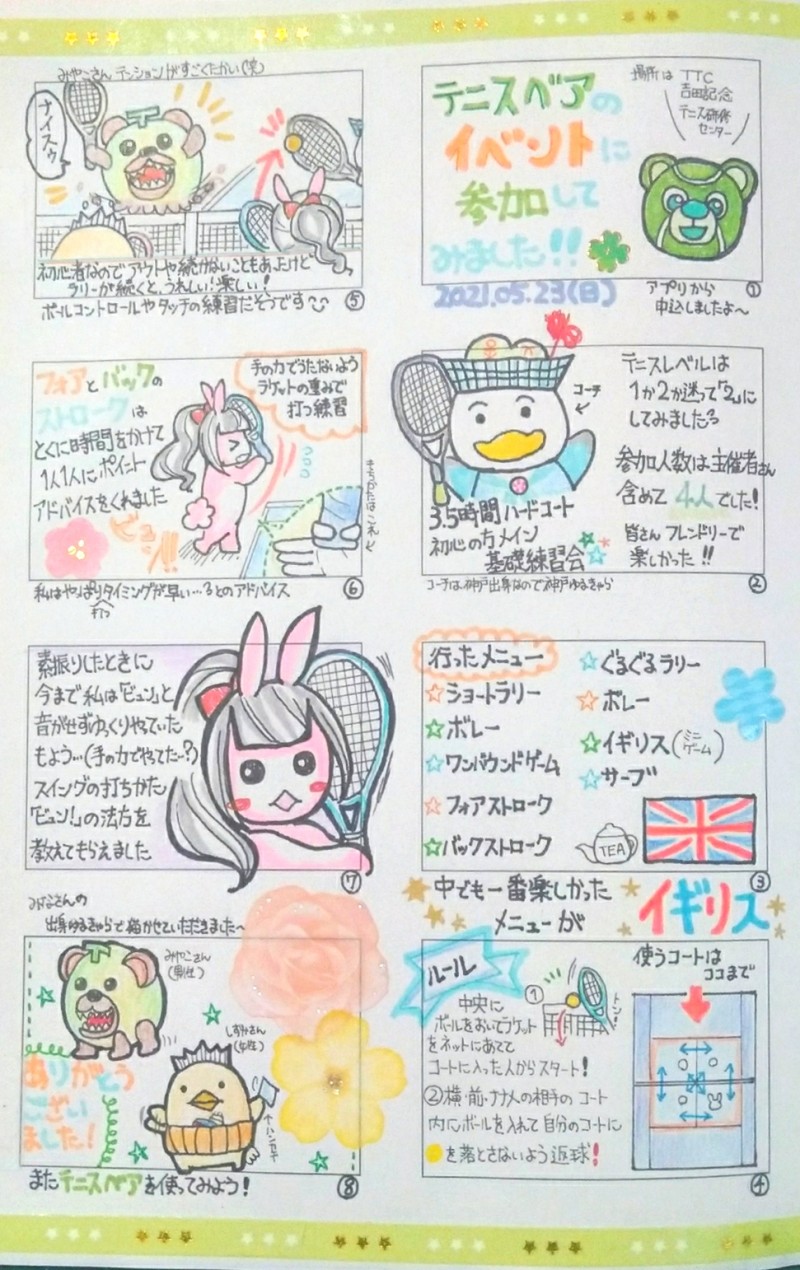 テニスベアの
イベントに
参加して
みました!!
2021.05.23(日)
場所は TTC
吉田記念
テニス研修
センター
アプリから
申込しましたよ〜
①
テニスレベルは
1か2か迷って「2」に
してみました
参加人数は主催者さん
含めて 4人でした!
皆さん フレンドリーで
楽しかった!!
コーチ
3.5時間ハードコート
初心の方メイン
基礎練習会
コーチは神戸出身なので神戸ゆるきゃら
②
行ったメニュー
☆ショートラリー
☆ボレー
☆ワンバウンドゲーム
☆フォアストローク
☆バックストローク
☆ぐるぐるラリー
☆ボレー
☆イギリス(ミニゲーム)
☆サーブ
TEA
③
中でも一番楽しかった
メニューが
イギリス
ルール
①
中央に
ボールをおいてラケット
をネットにあてて
コートに入った人からスタート!
②横・前・ナナメの相手のコート
内にボールを入れて自分のコートに
を落とさないよう返球!
使うコートは
ココまで
④
みやこさん テンションがすごくたかい(笑)
ナイスゥ
初心者なのでアウトや続かないこともあったけど
ラリーが続くと、うれしい!楽しい!
ボールコントロールやタッチの練習だそうです
⑤
フォアとバックの
ストロークは
とくに時間をかけて
1人1人にポイント
アドバイスをくれました
ビュン!!
手の力でうたないよう
ラケットの重みで
打つ練習
私はやっぱりタイミングが早い…とのアドバイス
打つ
⑥
素振りしたときに
今まで私は「ビュン」と
音がせずゆっくりやっていた
もよう…(手の力でやってた…?)
スイングの打ちかた
「ビュン!」の法方を
教えてもらえました
⑦
みなさんの
出身ゆるきゃらで描かせていただきました〜
みやこさん
(男性)
しずみさん
(女性)
ハンカチ
ありがとう
ござい
ました!
またテニスベアを使ってみよう!
⑧